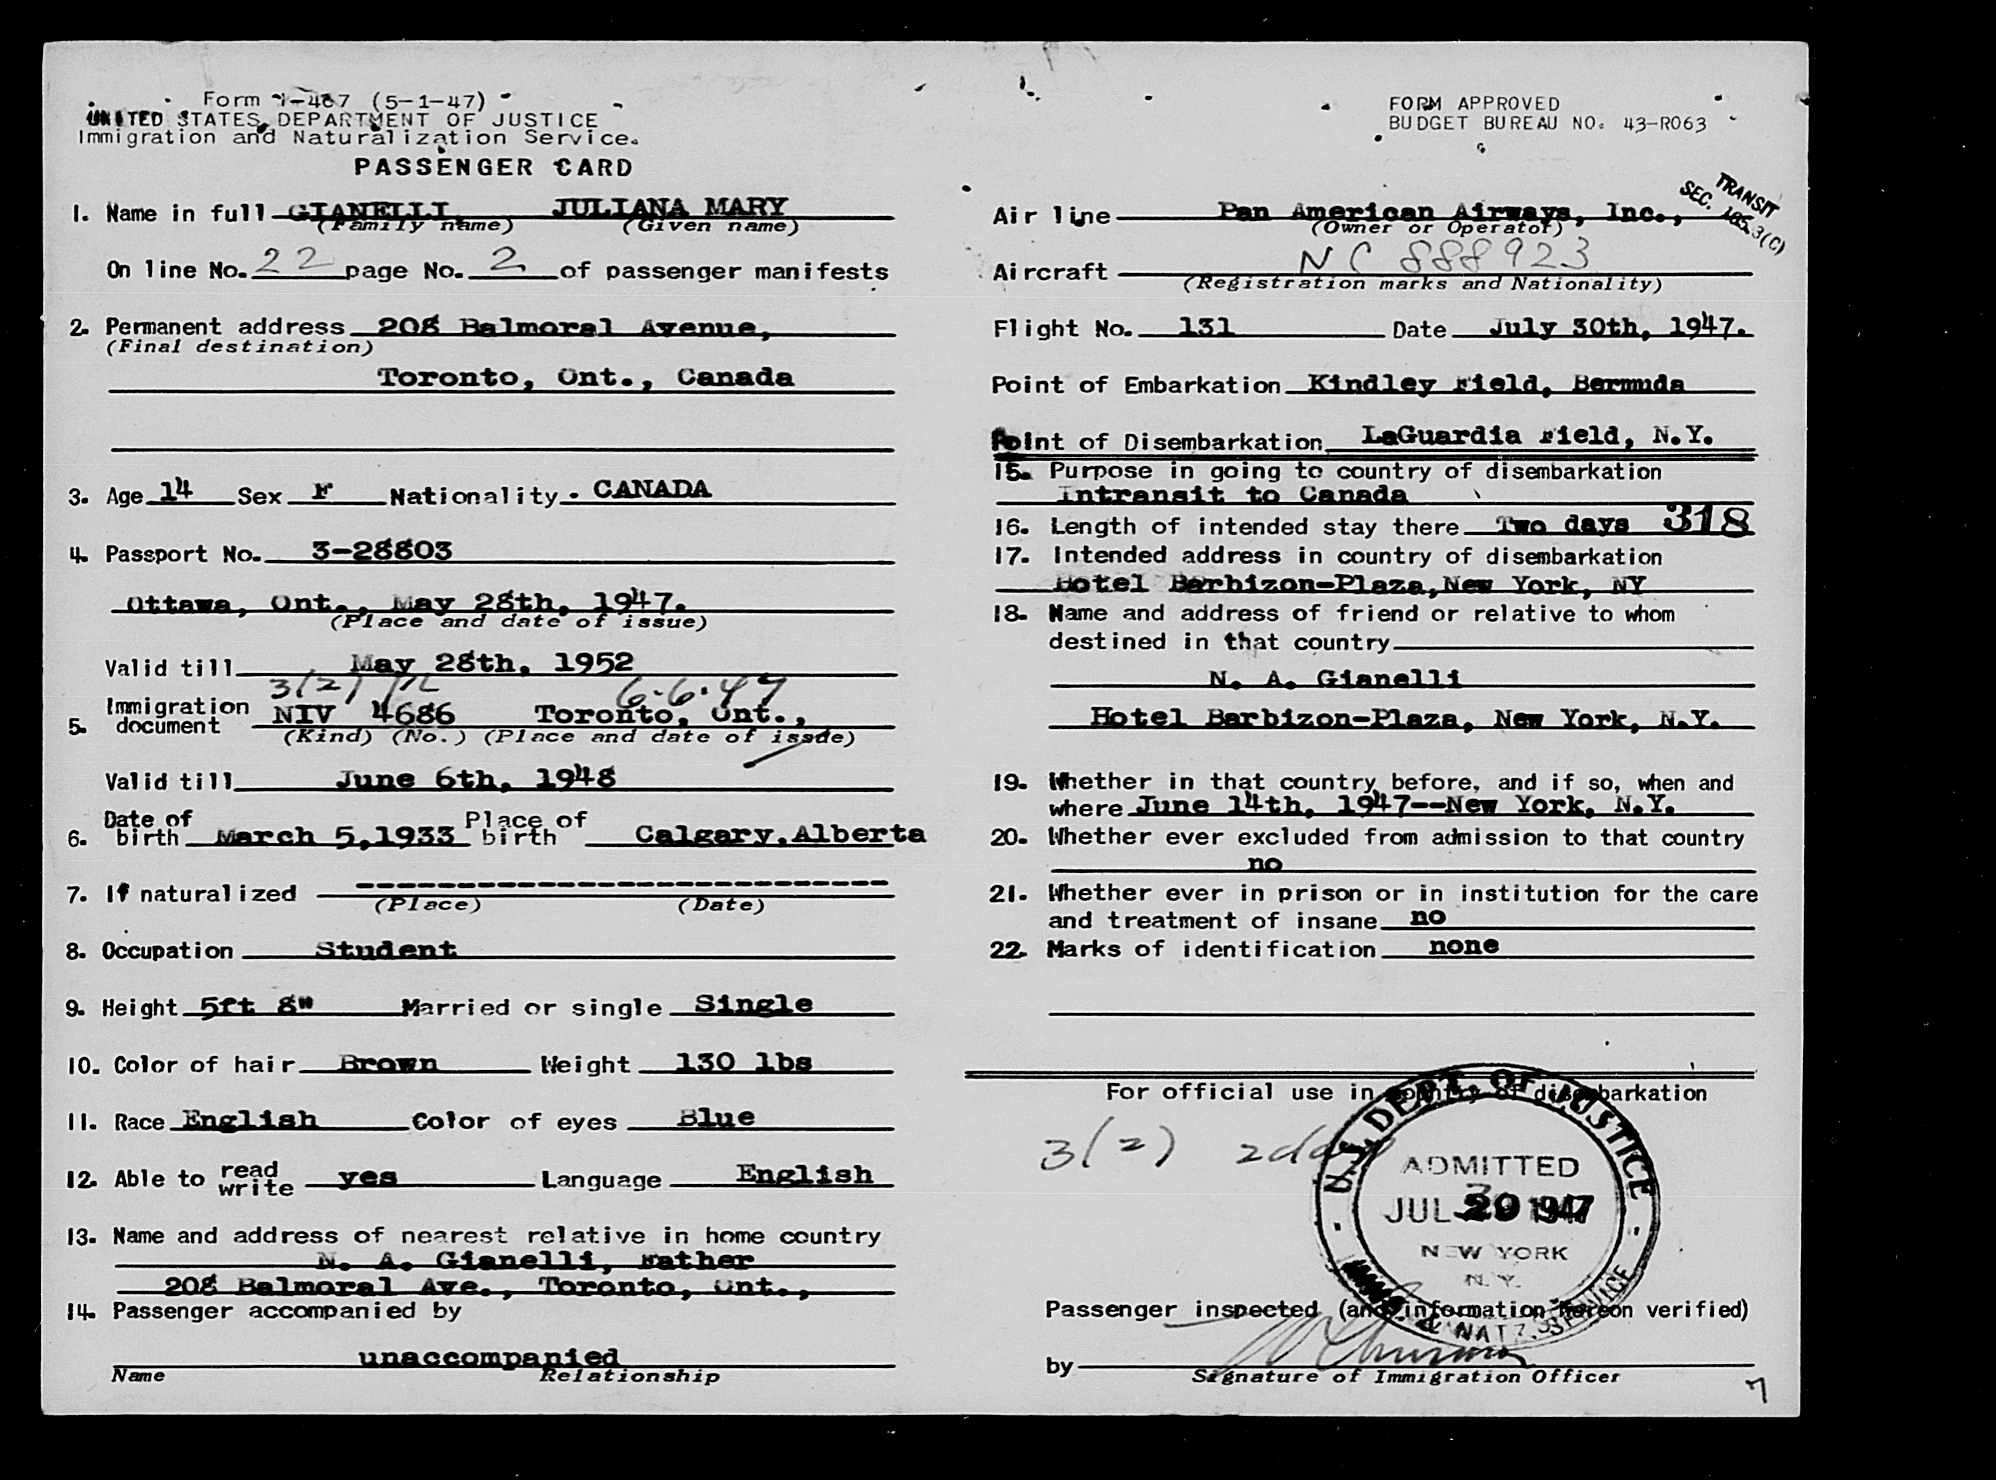 Form I-467 (5-1-47)
UNITED STATES DEPARTMENT OF JUSTICE
Immigration and Naturalization Service.
PASSENGER CARD
1. Name in full GIANELLI, JULIANA MARY
(Family name) (Given name)
On line No. 22 page No. 2 of passenger manifests
2. Permanent address 208 Balmoral Avenue,
(Final destination)
Toronto, Ont., Canada
3. Age 14 Sex F Nationality. CANADA
4. Passport No. 3-28803
Ottawa, Ont., May 28th, 1947.
(Place and date of issue)
Valid till May 28th, 1952
3(2) 6.6.47
5. Immigration document NIV 4686 Toronto, Ont.,
(Kind) (No.) (Place and date of issue)
Valid till June 6th, 1948
6. Date of birth March 5,1933 Place of birth Calgary,Alberta
7. If naturalized ---------------------------
(Place) (Date)
8. Occupation Student
9. Height 5ft 8" Married or single Single
10. Color of hair Brown Weight 130 lbs
11. Race English Color of eyes Blue
12. Able to read write yes Language English
13. Name and address of nearest relative in home country
N. A. Gianelli, Father
208 Balmoral Ave., Toronto, Ont.,
14. Passenger accompanied by
unaccompanied
Name Relationship
FORM APPROVED
BUDGET BUREAU NO. 43-R063
TRANSIT
SEC. 185.3(C)
Air line Pan American Airways, Inc.,
(Owner or Operator)
Aircraft NC 888923
(Registration marks and Nationality)
Flight No. 131 Date July 30th, 1947.
Point of Embarkation Kindley Field, Bermuda
Point of Disembarkation LaGuardia Field, N.Y.
15. Purpose in going to country of disembarkation
Intransit to Canada
16. Length of intended stay there Two days 318
17. Intended address in country of disembarkation
Hotel Barbizon-Plaza,New York, NY
18. Name and address of friend or relative to whom
destined in that country
N. A. Gianelli
Hotel Barbizon-Plaza, New York, N.Y.
19. Whether in that country before, and if so, when and
where June 14th, 1947--New York, N.Y.
20. Whether ever excluded from admission to that country
no
21. Whether ever in prison or in institution for the care
and treatment of insane no
22. Marks of identification none
For official use in country of disembarkation
3(2) 2 days
U.S. DEPT. OF JUSTICE
ADMITTED
JUL 1947
NEW YORK
N.Y.
& NATZ. SERVICE
Passenger inspected (and information hereon verified)
by
Signature of Immigration Officer
7